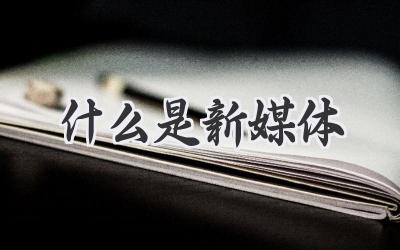 什么是新媒体